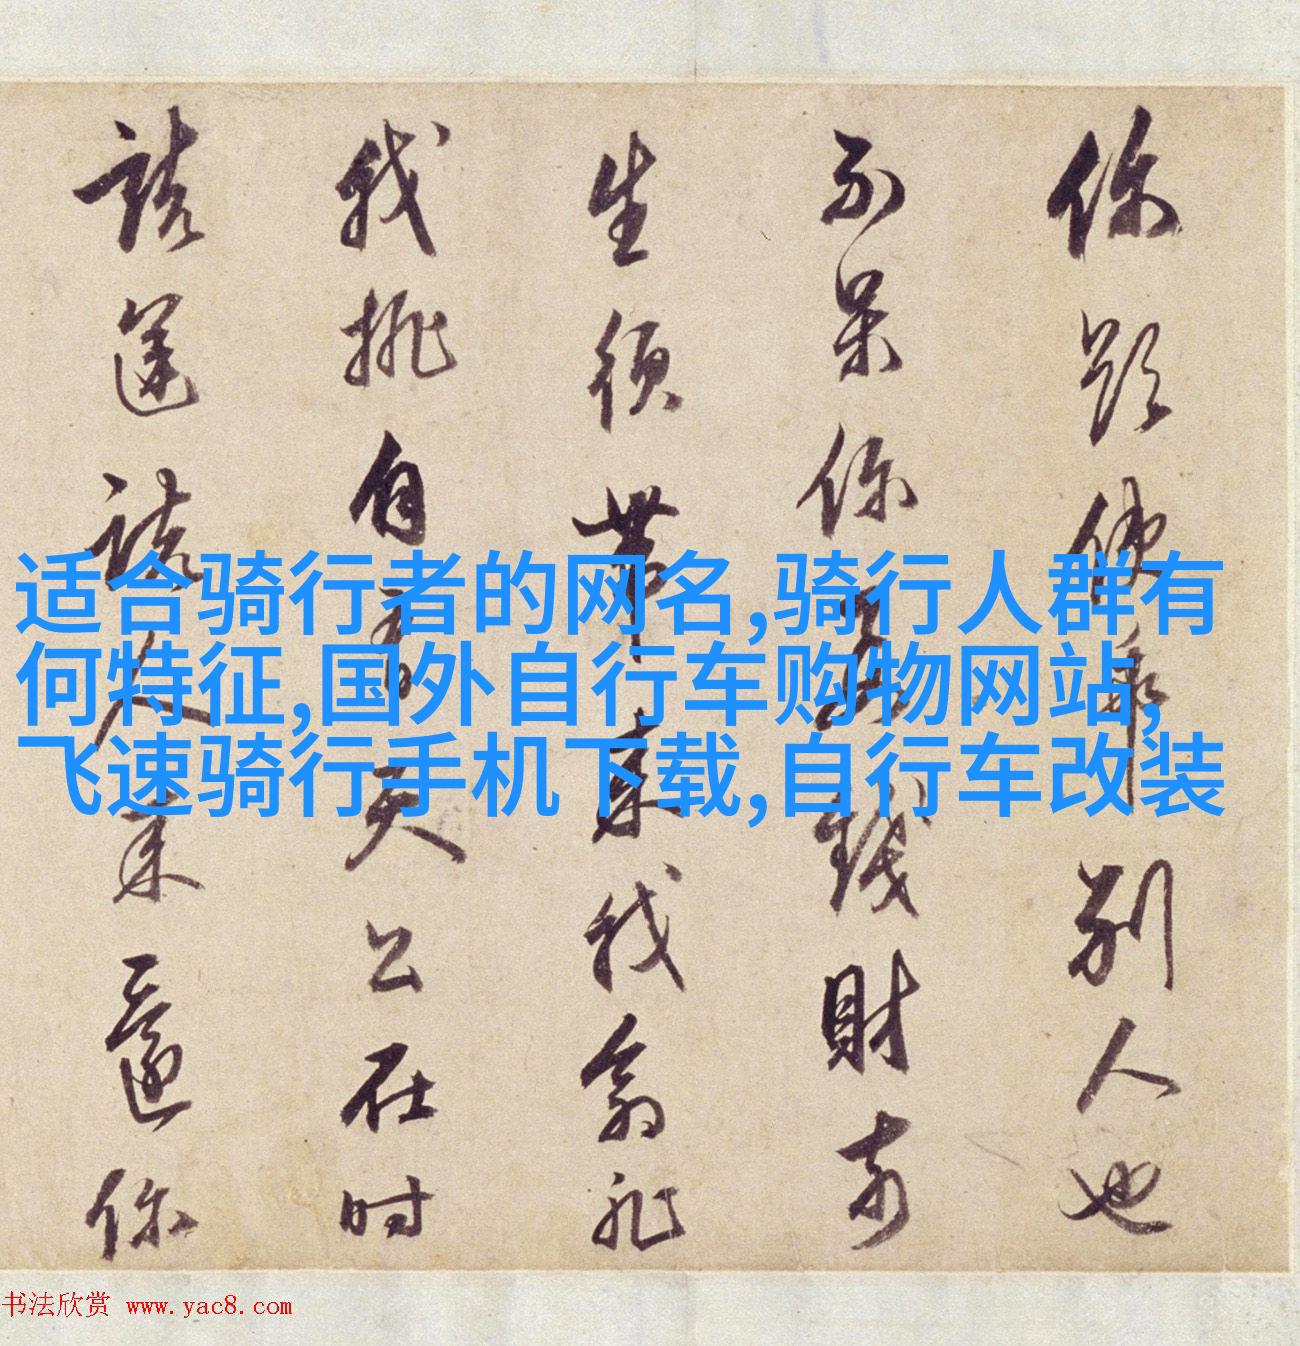 你使乖别人也
不呆你錢財前
生須帶来我命非
我挑自有天公在时
人来還你
适合骑行者的网名,骑行人群有
何特征,国外自行车购物网站,
飞速骑行手机下载,自行车改装
书法欣赏 www.yac8.com